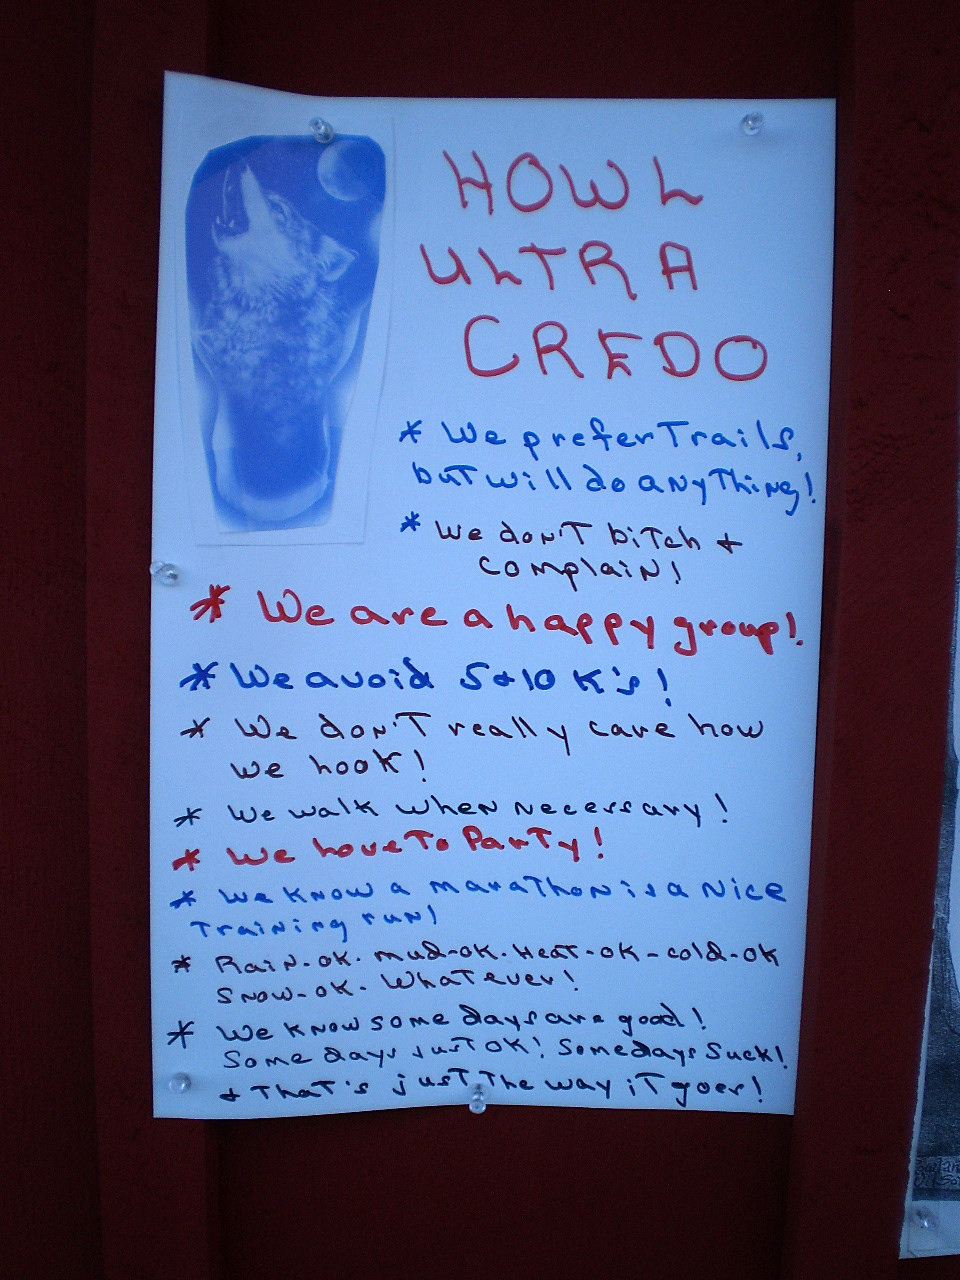 HOWL
ULTRA
CREDO
* We prefer Trails,
but will do anything!
* We don't bitch +
complain!
* We are a happy group!
* We avoid 5+10 K's!
* We don't really care how
we hook!
* We walk when necessary!
* We have To Party!
* We know a marathon is a nice
Training run!
* Rain-ok. mud-ok. Heat-ok-cold-ok
Snow-ok. Whatever!
* We know some days are good!
Some days just OK! Some days Suck!
+ That's just The way iT goes!